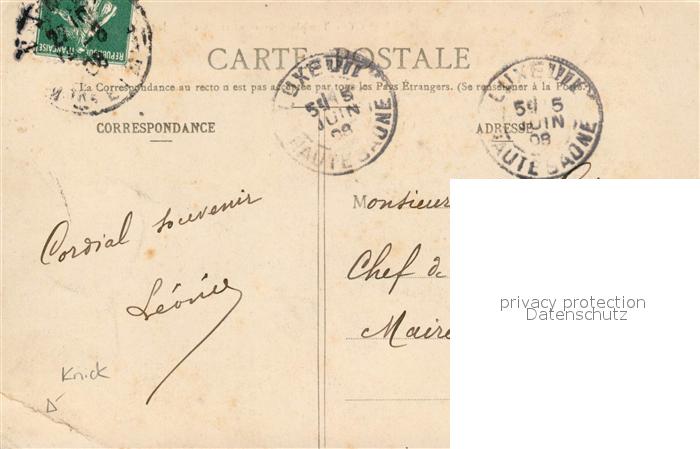 RÉPUBLIQUE FRANÇAISE
CARTE POSTALE
La Correspondance au recto n est pas acceptée par tous les Pays Étrangers. (Se renseigner à la Poste.)
CORRESPONDANCE
ADRESSE
LUXEUIL
5E 5
JUIN
08
HAUTE SAONE
LUXEUIL
5E 5
JUIN
08
HAUTE SAONE
Cordial souvenir
Monsieur
Chef de
Maire
privacy protection
Datenschutz
Knick